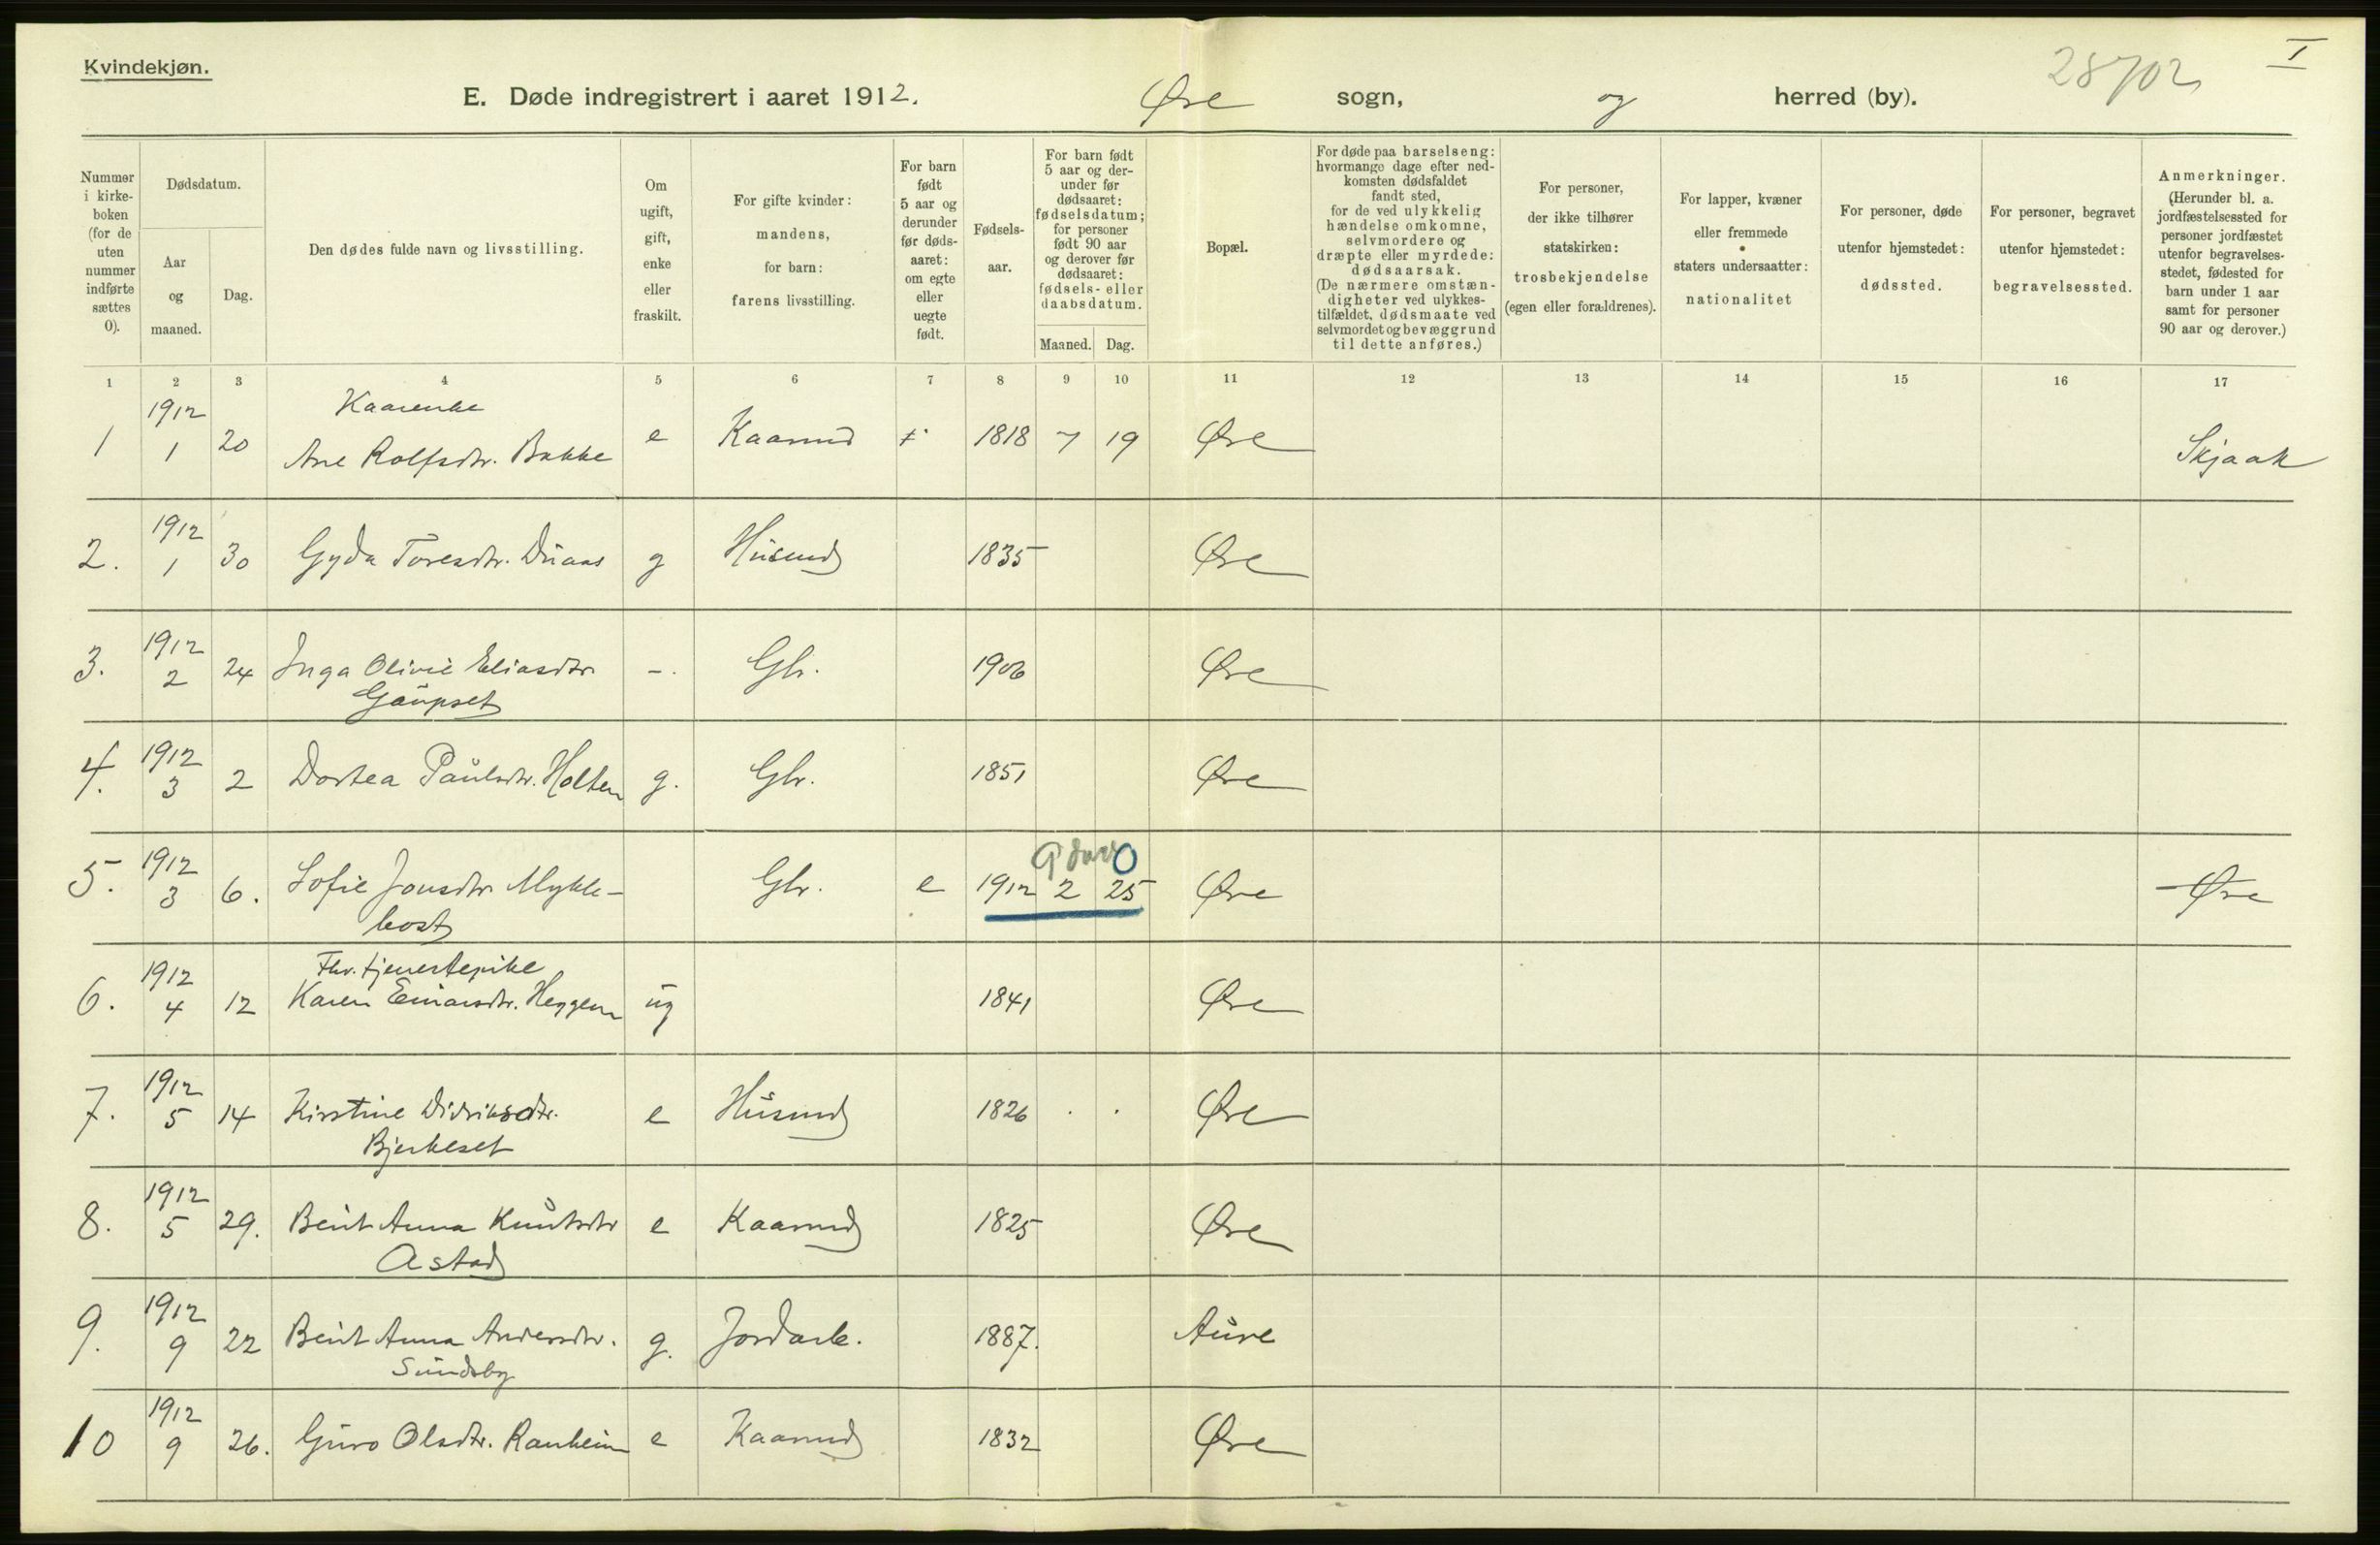 Kvindekjøn.
28702
I
E. Døde indregistrert i aaret 1912. Øre sogn, og herred (by).
Nummer i kirke-boken (for de uten nummer indførte sættes 0).
Dødsdatum.
Aar og maaned.
Dag.
Den dødes fulde navn og livsstilling.
Om ugift, gift, enke eller fraskilt.
For gifte kvinder: mandens, for barn: farens livsstilling.
For barn født 5 aar og derunder før døds-aaret: om egte eller uegte født.
Fødsels-aar.
For barn født 5 aar og der-under før dødsaaret: fødselsdatum; for personer født 90 aar og derover før dødsaaret: fødsels- eller daabsdatum.
Maaned.
Dag.
Bopæl.
For døde paa barselseng: hvormange dage efter ned-komsten dødsfaldet fandt sted, for de ved ulykkelig hændelse omkomne, selvmordere og dræpte eller myrdede: dødsaarsak. (De nærmere omstæn-digheter ved ulykkes-tilfældet, dødsmaate ved selvmordet og bevæggrund til dette anføres.)
For personer, der ikke tilhører statskirken: trosbekjendelse (egen eller forældrenes).
For lapper, kvæner eller fremmede staters undersaatter: nationalitet
For personer, døde utenfor hjemstedet: dødssted.
For personer, begravet utenfor hjemstedet: begravelsessted.
Anmerkninger. (Herunder bl. a. jordfæstelsessted for personer jordfæstet utenfor begravelses-stedet, fødested for barn under 1 aar samt for personer 90 aar og derover.)
1 2 3 4 5 6 7 8 9 10 11 12 13 14 15 16 17
1912 Kaarenke
1 1 20 Ane Rolfsdtr. Bakke e Kaarmd 1818 7 19 Øre Skjaak
1912
2. 1 30 Gyda Toresdtr. Duaas g Husmd 1835 Øre
1912
3. 2 24 Inga Olivie Eliasdtr. -. Gbr. 1906 Øre
Gaupset
1912
4. 3 2 Dortea Paulsdtr. Holten g. Gbr. 1851 Øre
1912 9 dage 0
5. 3 6. Sofie Jonsdtr Mykle- Gbr. e 1912 2 25 Øre Øre
bost
1912 Fhv. tjenestepike
6. 4 12 Karen Einarsdtr. Heggem ug 1841 Øre
1912
7. 5 14 Kirstine Didriksdtr. e Husmd 1826 Øre
Bjerkeset
1912
8. 5 29. Berit Anna Knutsdtr e Kaarmd 1825 Øre
Astad
1912
9. 9 22 Berit Anna Andersdtr. g. Jordarb. 1887. Aure
Sundsby
1912
10 9 26. Guro Olsdtr. Ranheim e Kaarmd 1832 Øre